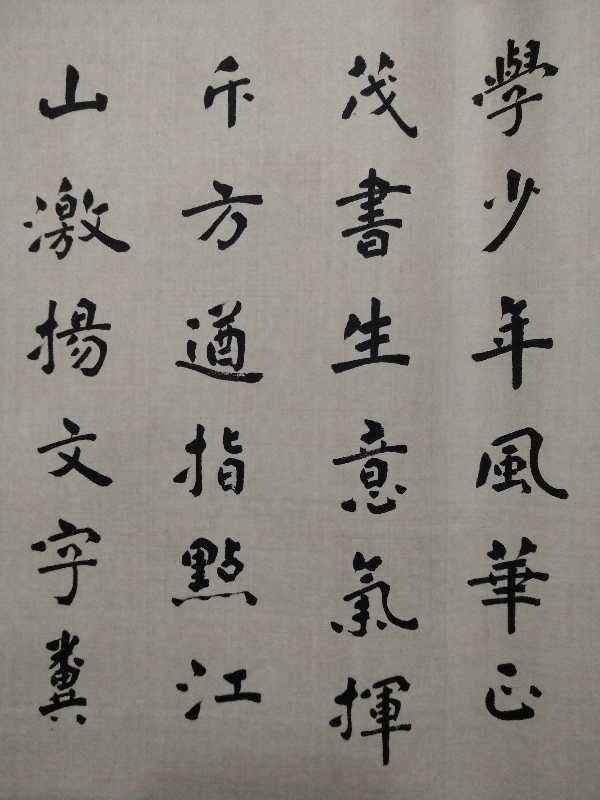 學少年風華正
茂書生意氣揮
斥方遒指點江
山激揚文字糞